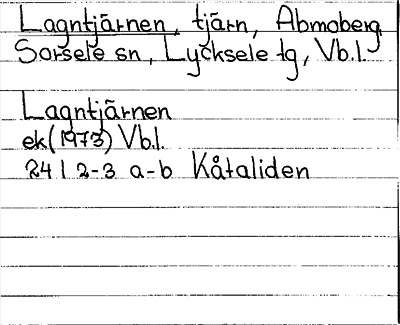 Lagntjärnen, tjärn, Abmoberg
Sorsele sn, Lycksele tg, Vb.l.
Lagntjärnen
ek(1973) Vb.l.
24 I 2-3 a-b Kåtaliden